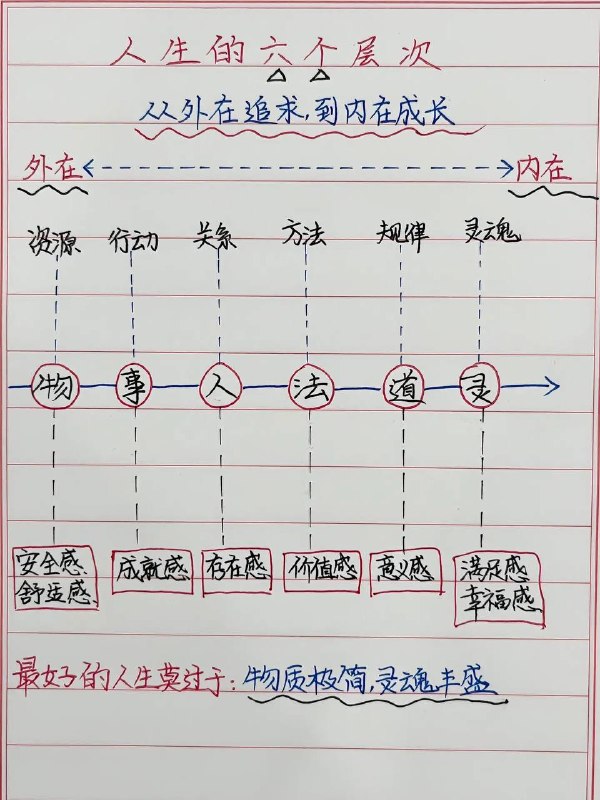 人生的六个层次
从外在追求,到内在成长
外在 内在
资源 行动 关系 方法 规律 灵魂
物 事 人 法 道 灵
安全感 成就感 存在感 价值感 意义感 满足感
舒适感 幸福感
最好的人生莫过于:物质极简,灵魂丰盛